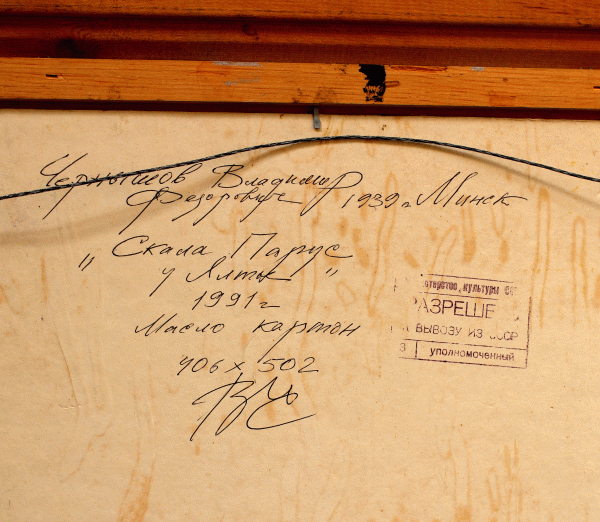 Чернышов Владимир
Федорович 1939 г. Минск
„Скала Парус
у Ялты"
1991 г
Масло картон
406 x 502
ВЧ
терство культуры
РАЗРЕШЕ
ВЫВОЗУ ИЗ СССР
3 уполномоченный